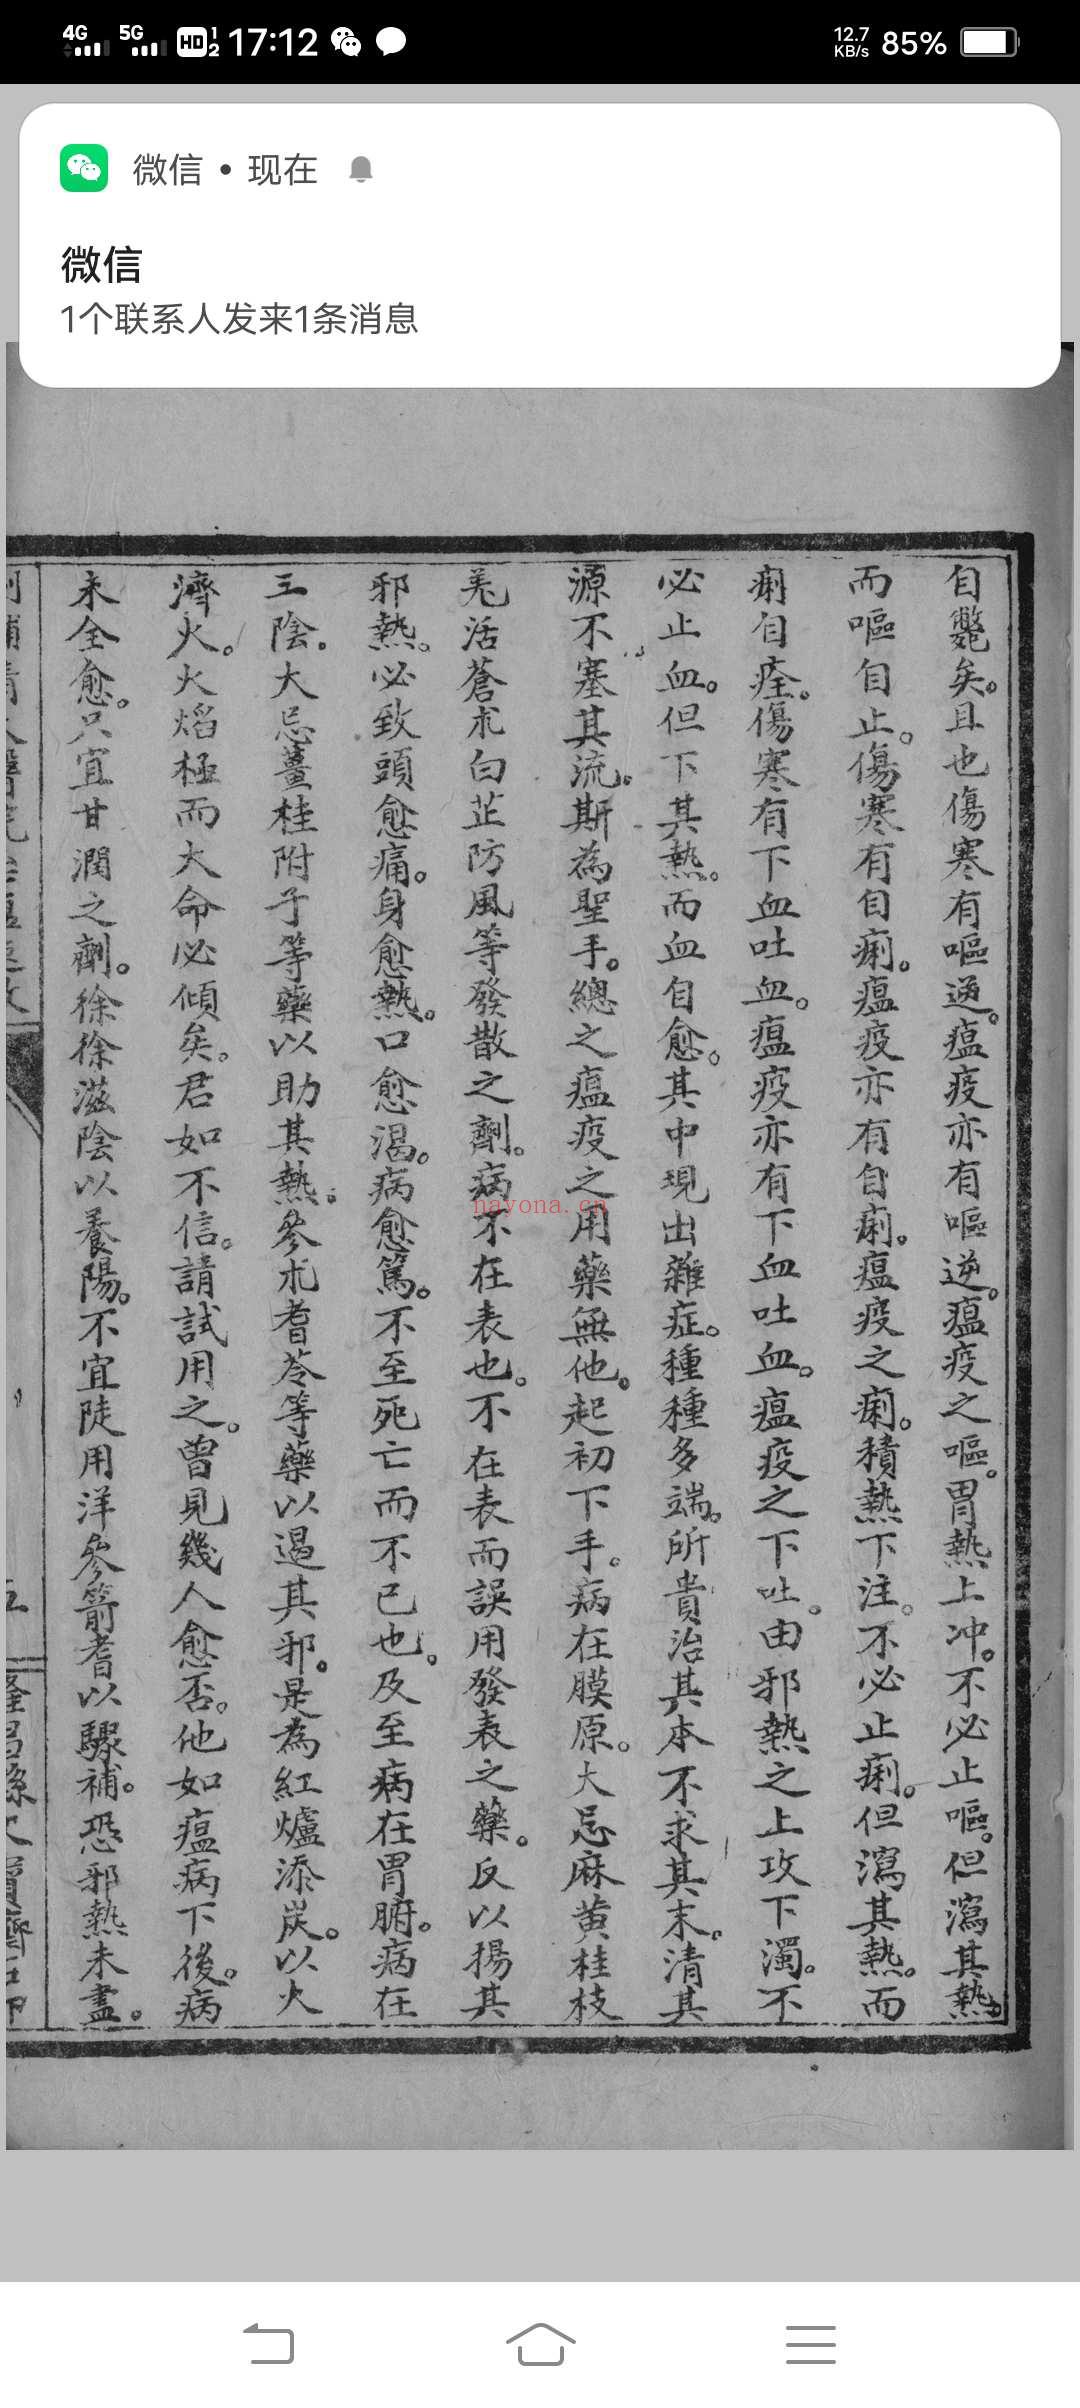 4G 5G HD 1 2 17:12 12.7 KB/s 85%
微信 • 现在
微信
1个联系人发来1条消息
自斃矣。且也傷寒有嘔逆。瘟疫亦有嘔逆。瘟疫之嘔。胃熱上冲。不必止嘔。但瀉其熱。
而嘔自止。傷寒有自痢。瘟疫亦有自痢。瘟疫之痢。積熱下注。不必止痢。但瀉其熱。而
痢自痊。傷寒有下血吐血。瘟疫亦有下血吐血。瘟疫之下吐。由邪熱之上攻下濁。不
必止血。但下其熱。而血自愈。其中現出雜症。種種多端。所貴治其本不求其末。清其
源不塞其流。斯為聖手。總之瘟疫之用藥無他。起初下手。病在膜原。大忌麻黄桂枝
羌活蒼朮白芷防風等發散之劑。病不在表也。不在表而誤用發表之藥。反以揚其
邪熱。必致頭愈痛。身愈熱。口愈渴。病愈篤。不至死亡而不已也。及至病在胃腑。病在
三陰。大忌薑桂附子等藥以助其熱。參朮耆苓等藥以遏其邪。是為紅爐添炭。以火
濟火。火焰極而大命必傾矣。君如不信。請試用之。曾見幾人愈否。他如瘟病下後。病
未全愈。只宜甘潤之劑。徐徐滋陰以養陽。不宜陡用洋參箭耆以驟補。恐邪熱未盡。
nayona.cn